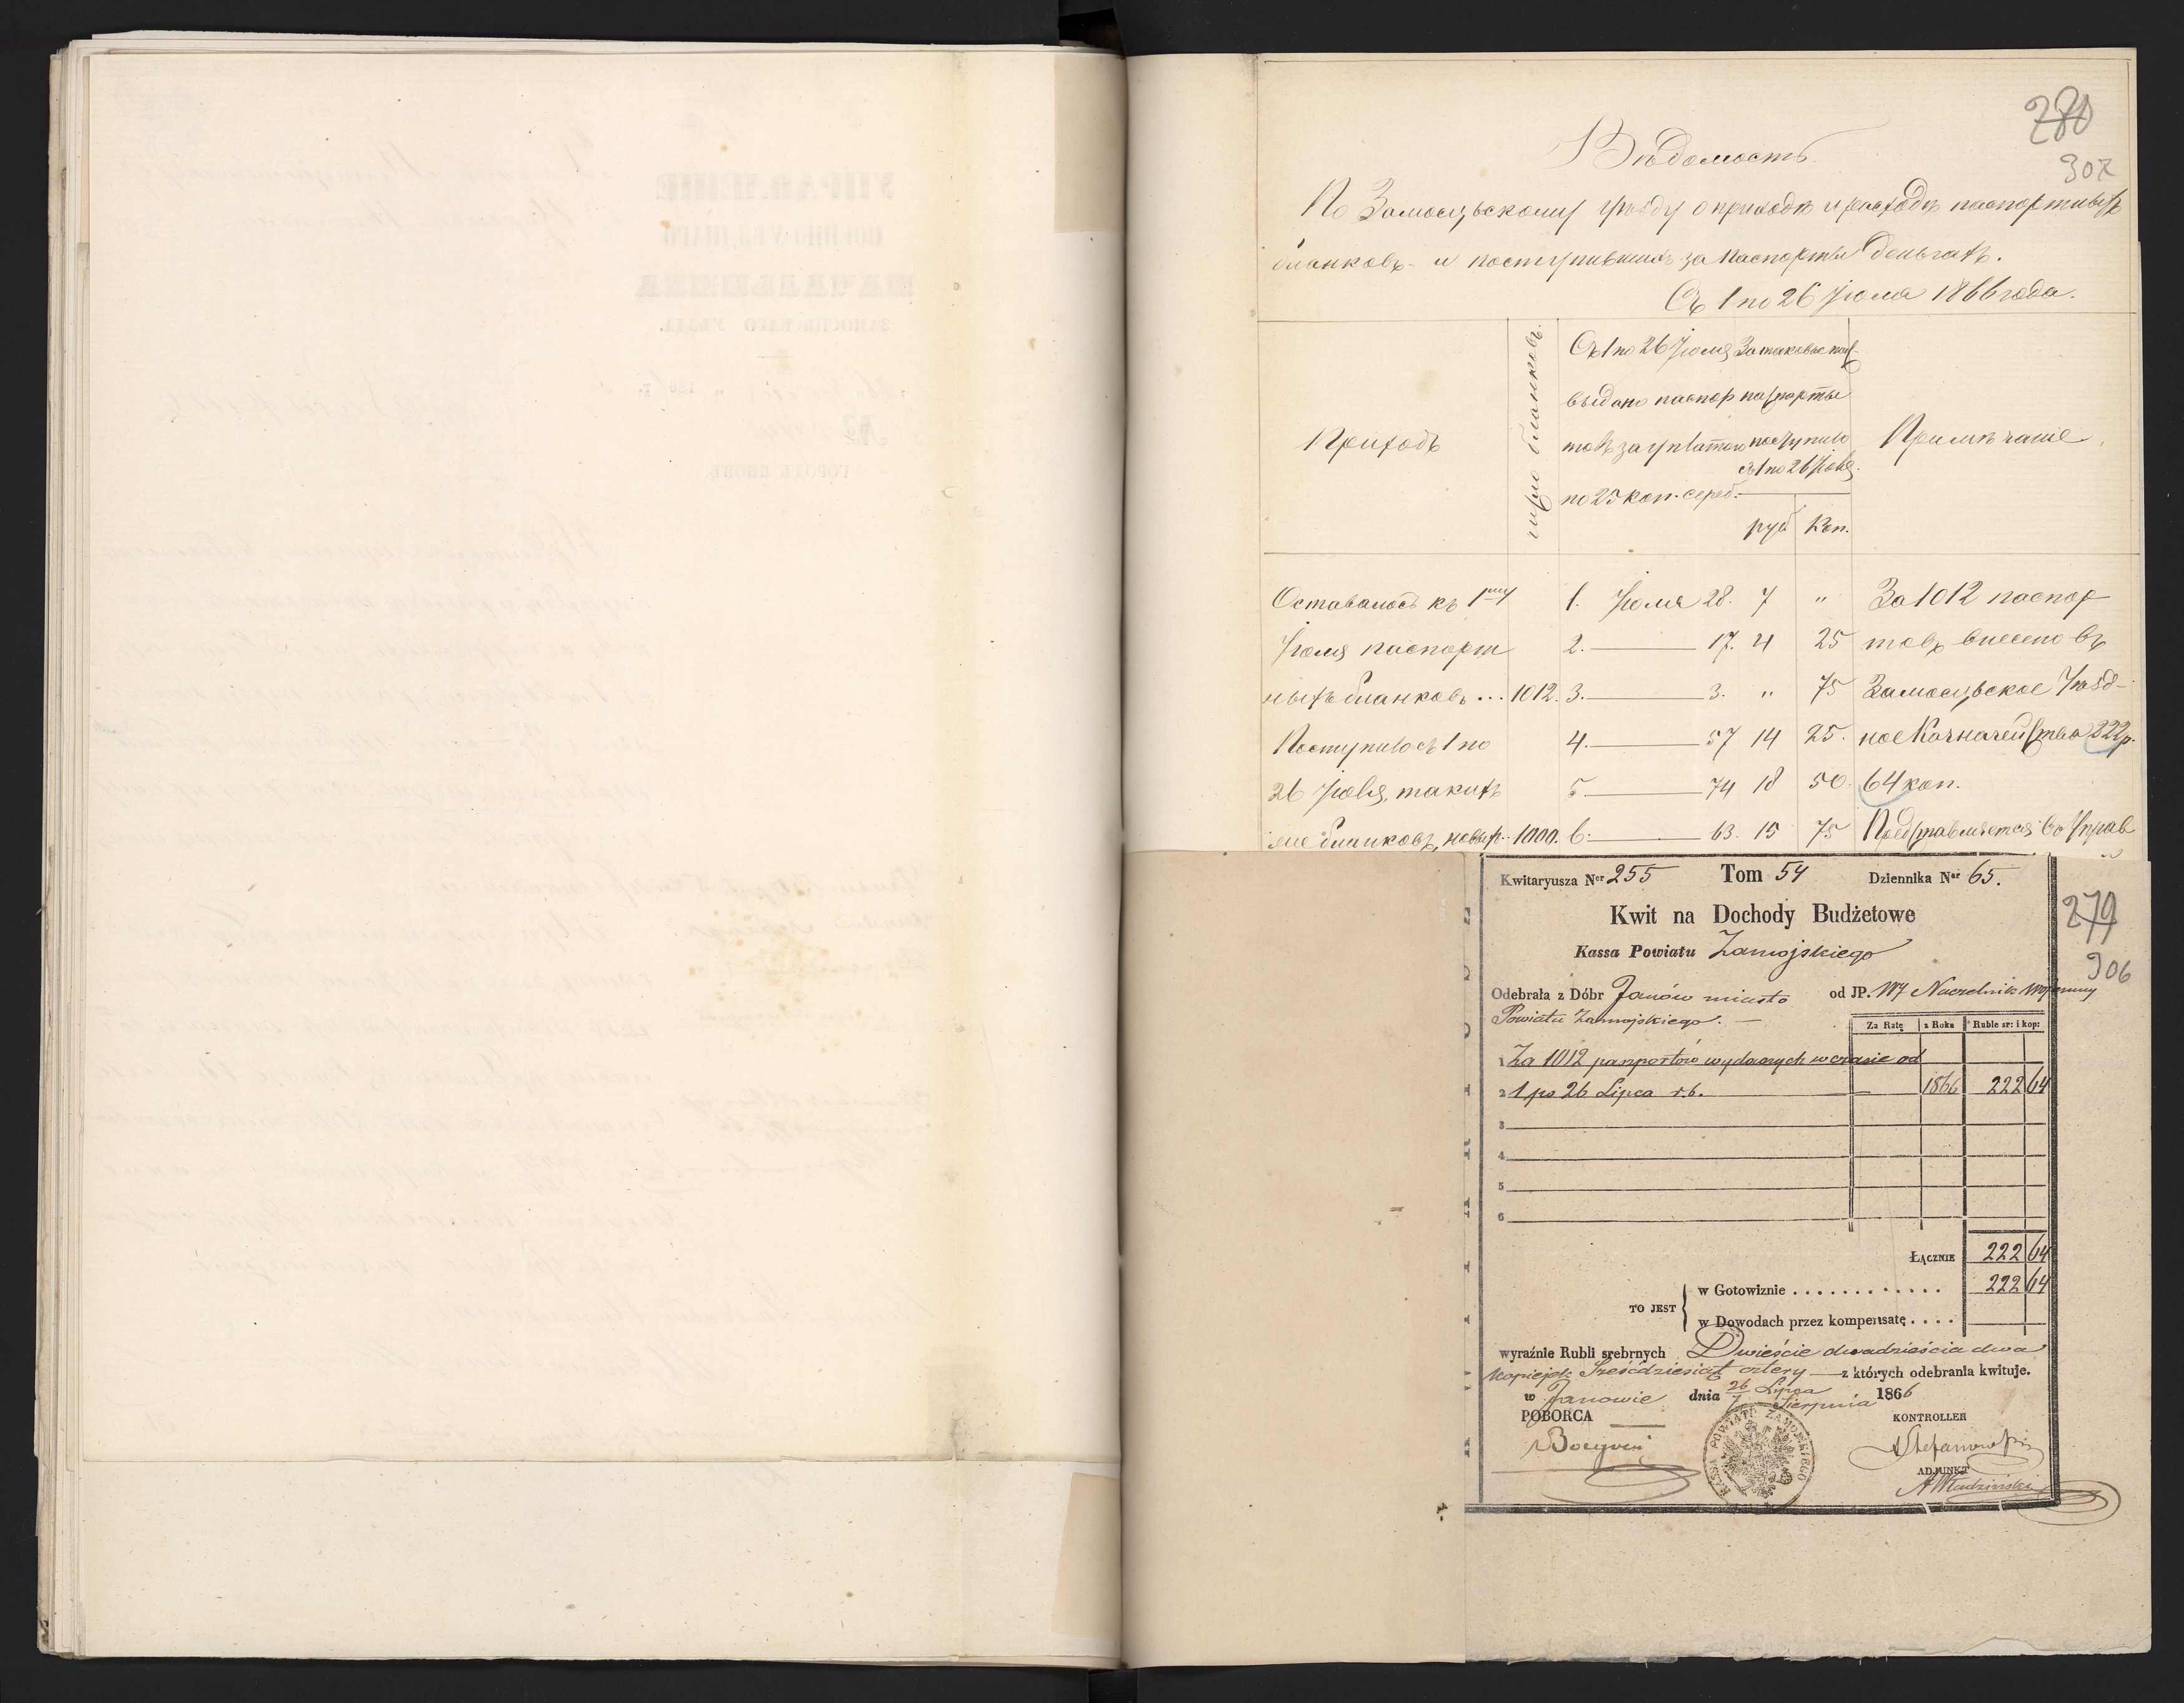 280
307
Вѣдомость
По Замосцьскому уѣзду о приходѣ и расходѣ паспортныхъ
бланковъ и поступившихъ за паспорты деньгахъ.
Съ 1 по 26 Іюля 1866 года.
Приходъ
число бланковъ.
Съ 1 по 26 Іюля
выдано паспор
товъ за уплатою
по 25 коп. сереб.
За таковые
паспорты
поступило
съ 1 по 26 Іюля.
руб. Коп.
Примѣчаніе.
Оставалось къ 1му 1. Іюля 28. 7 "
Іюля паспорт 2. 17. 4 25
ныхъ бланковъ... 1012. 3. 3. " 75
Поступило съ 1 по 4. 57 14 25.
26 Іюля, таких 5 74 18 50.
же бланковъ, 1000. 6. 63. 15 75
За 1012 паспор
товъ внесено въ
Замосцьское Уѣзд-
ное Казначейство 222 р.
64 коп.
Представляется въ Управ
Kwitaryusza Ner 255 Tom 54 Dziennika Ner 65.
279
306
Kwit na Dochody Budżetowe
Kassa Powiatu Zamojskiego
Odebrała z Dóbr Janów miasto od JP. W Naczelnik Wojenny
Powiatu Zamojskiego.
Za Ratę z Roku Ruble sr: i kop:
1 Za 1012 paszportów wydanych w czasie od
2 1 po 26 Lipca r.b. 1866 222 64
3
4
5
6
Łącznie 222 64
TO JEST
w Gotowiznie 222 64
w Dowodach przez kompensatę
wyraźnie Rubli srebrnych Dwieście dwadzieścia dwa
kopiejek Sześćdziesiąt cztery z których odebrania kwituje.
w Janowie dnia 26 Lipca / 7 Sierpnia 1866
POBORCA
KONTROLLER
ADJUNKT
KASSA POWIATU ZAMOJSKIEGO